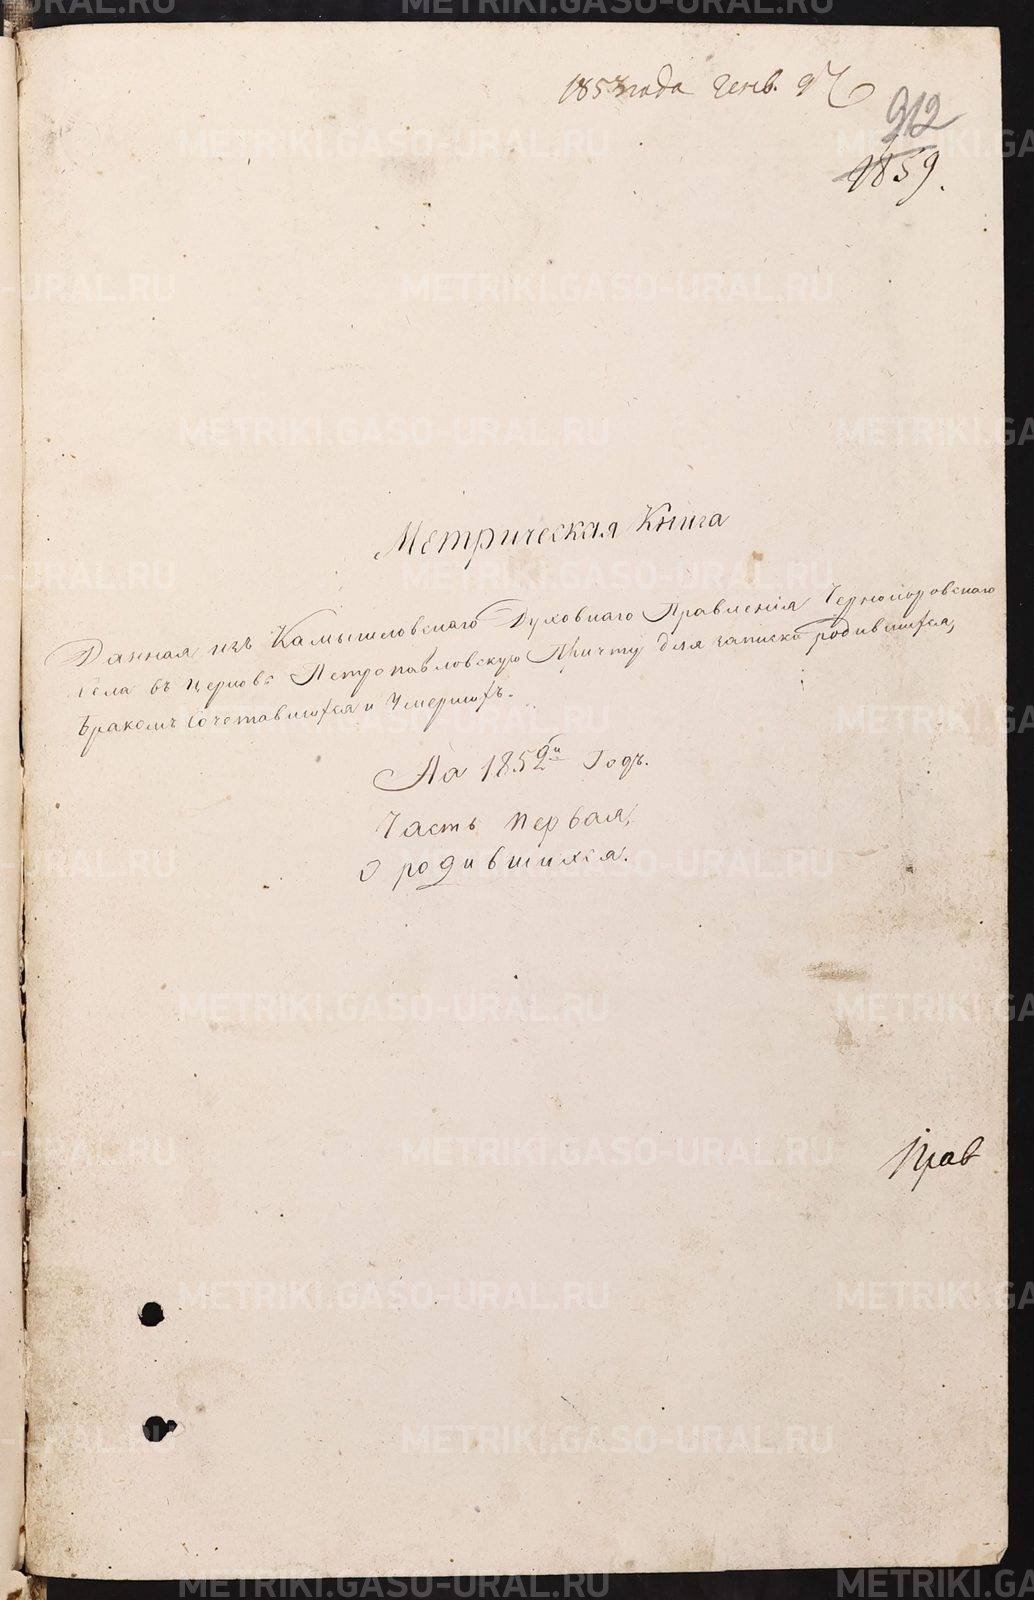 1853 года Генв. 9
912
1859.
Метрическая Книга
Данная изъ Камышловскаго Духовнаго Правленія Чернокоровскаго
Села въ церковь Петропавловскую Причту для записки родившихся,
Бракомъ сочетавшихся и Умершихъ.
На 1852й Годъ.
Часть первая,
О родившихся.
Прав